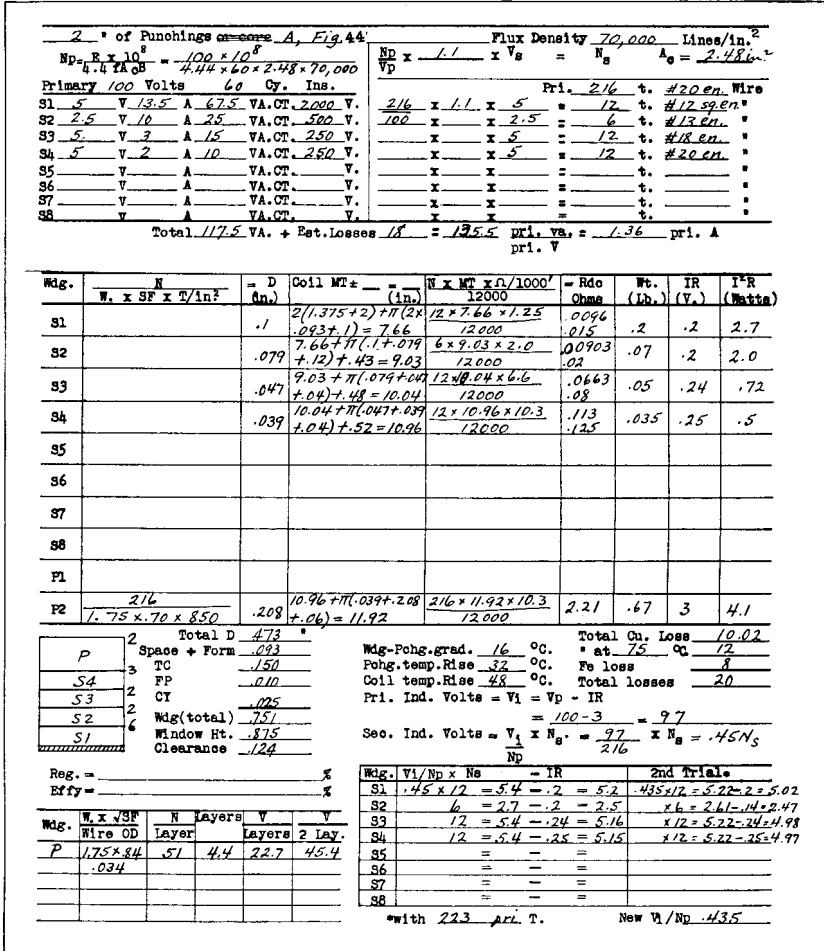 2 " of Punchings or core A, Fig. 44 Flux Density 70,000 Lines/in.²
Np = E x 10⁸ / 4.4 fAcB = 100 × 10⁸ / 4.44 × 60 × 2.48 × 70,000 Np/Vp x 1.1 x Vs = Ns Ac = 2.48 in²
Primary 100 Volts 60 Cy. Ins. Pri. 216 t. #20 en. Wire
S1 5 V 13.5 A 67.5 VA.CT. 2000 V. 216 x 1.1 x 5 = 12 t. #12 sq. en. "
S2 2.5 V 10 A 25 VA.CT. 500 V. 100 x x 2.5 = 6 t. #13 en. "
S3 5. V 3 A 15 VA.CT. 250 V. x x 5 = 12 t. #18 en. "
S4 5 V 2 A 10 VA.CT. 250 V. x x 5 = 12 t. #20 en. "
S5 V A VA.CT. V. x x = t. "
S6 V A VA.CT. V. x x = t. "
S7 V A VA.CT. V. x x = t. "
S8 V A VA.CT. V. x x = t. "
Total 117.5 VA. + Est.Losses 18 = 135.5 pri. va. = 1.36 pri. A
pri. V
Wdg. N / W. x SF x T/in² = D (in.) Coil MT± = (in.) N x MT x Ω/1000' / 12000 = Rdc Ohms Wt. (Lb.) IR (V.) I²R (Watts)
S1 .1 2(1.375+2)+π(2× .093+.1) = 7.66 12 × 7.66 × 1.25 / 12000 .0096 .015 .2 .2 2.7
S2 .079 7.66+π(.1+.079 +.12)+.43 = 9.03 6 × 9.03 × 2.0 / 12000 .00903 .02 .07 .2 2.0
S3 .047 9.03+π(.079+.047 +.04)+.48 = 10.04 12×10.04×6.6 / 12000 .0663 .08 .05 .24 .72
S4 .039 10.04+π(.047+.039 +.04)+.52 = 10.96 12 × 10.96 × 10.3 / 12000 .113 .125 .035 .25 .5
S5
S6
S7
S8
P1
P2 216 / 1.75 × .70 × 850 .208 10.96+π(.039+.208 +.06) = 11.92 216 × 11.92 × 10.3 / 12000 2.21 .67 3 4.1
Total D .473 " Total Cu. Loss 10.02
Space + Form .093 Wdg-Pchg.grad. 16 °C. " at 75 °C. 12
TC .150 Pchg.temp.Rise 32 °C. Fe loss 8
FP .010 Coil temp.Rise 48 °C. Total losses 20
CT .025 Pri. Ind. Volts = Vi = Vp - IR
Wdg(total) .751 = 100 - 3 = 97
Window Ht. .875 Sec. Ind. Volts = Vi / Np x Ns. = 97 / 216 x Ns = .45Ns
Clearance .124
P 2
S4 3
S3 2
S2 2
S1 6
Reg. = %
Effy= %
Wdg. W. x √SF / Wire OD N / Layer Layers V / Layers V / 2 Lay.
P 1.75×.84 / .034 51 4.4 22.7 45.4
Wdg. Vi/Np x Ns - IR 2nd Trial*
S1 .45 × 12 = 5.4 - .2 = 5.2 .435×12 = 5.22-.2 = 5.02
S2 6 = 2.7 - .2 - 2.5 ×6 = 2.61-.14 = 2.47
S3 12 = 5.4 - .24 = 5.16 ×12 = 5.22-.24 = 4.98
S4 12 = 5.4 - .25 = 5.15 ×12 = 5.22-.25 = 4.97
S5 = - =
S6 = - =
S7 = - =
S8 = - =
*with 223 pri T. New Vi/Np .435